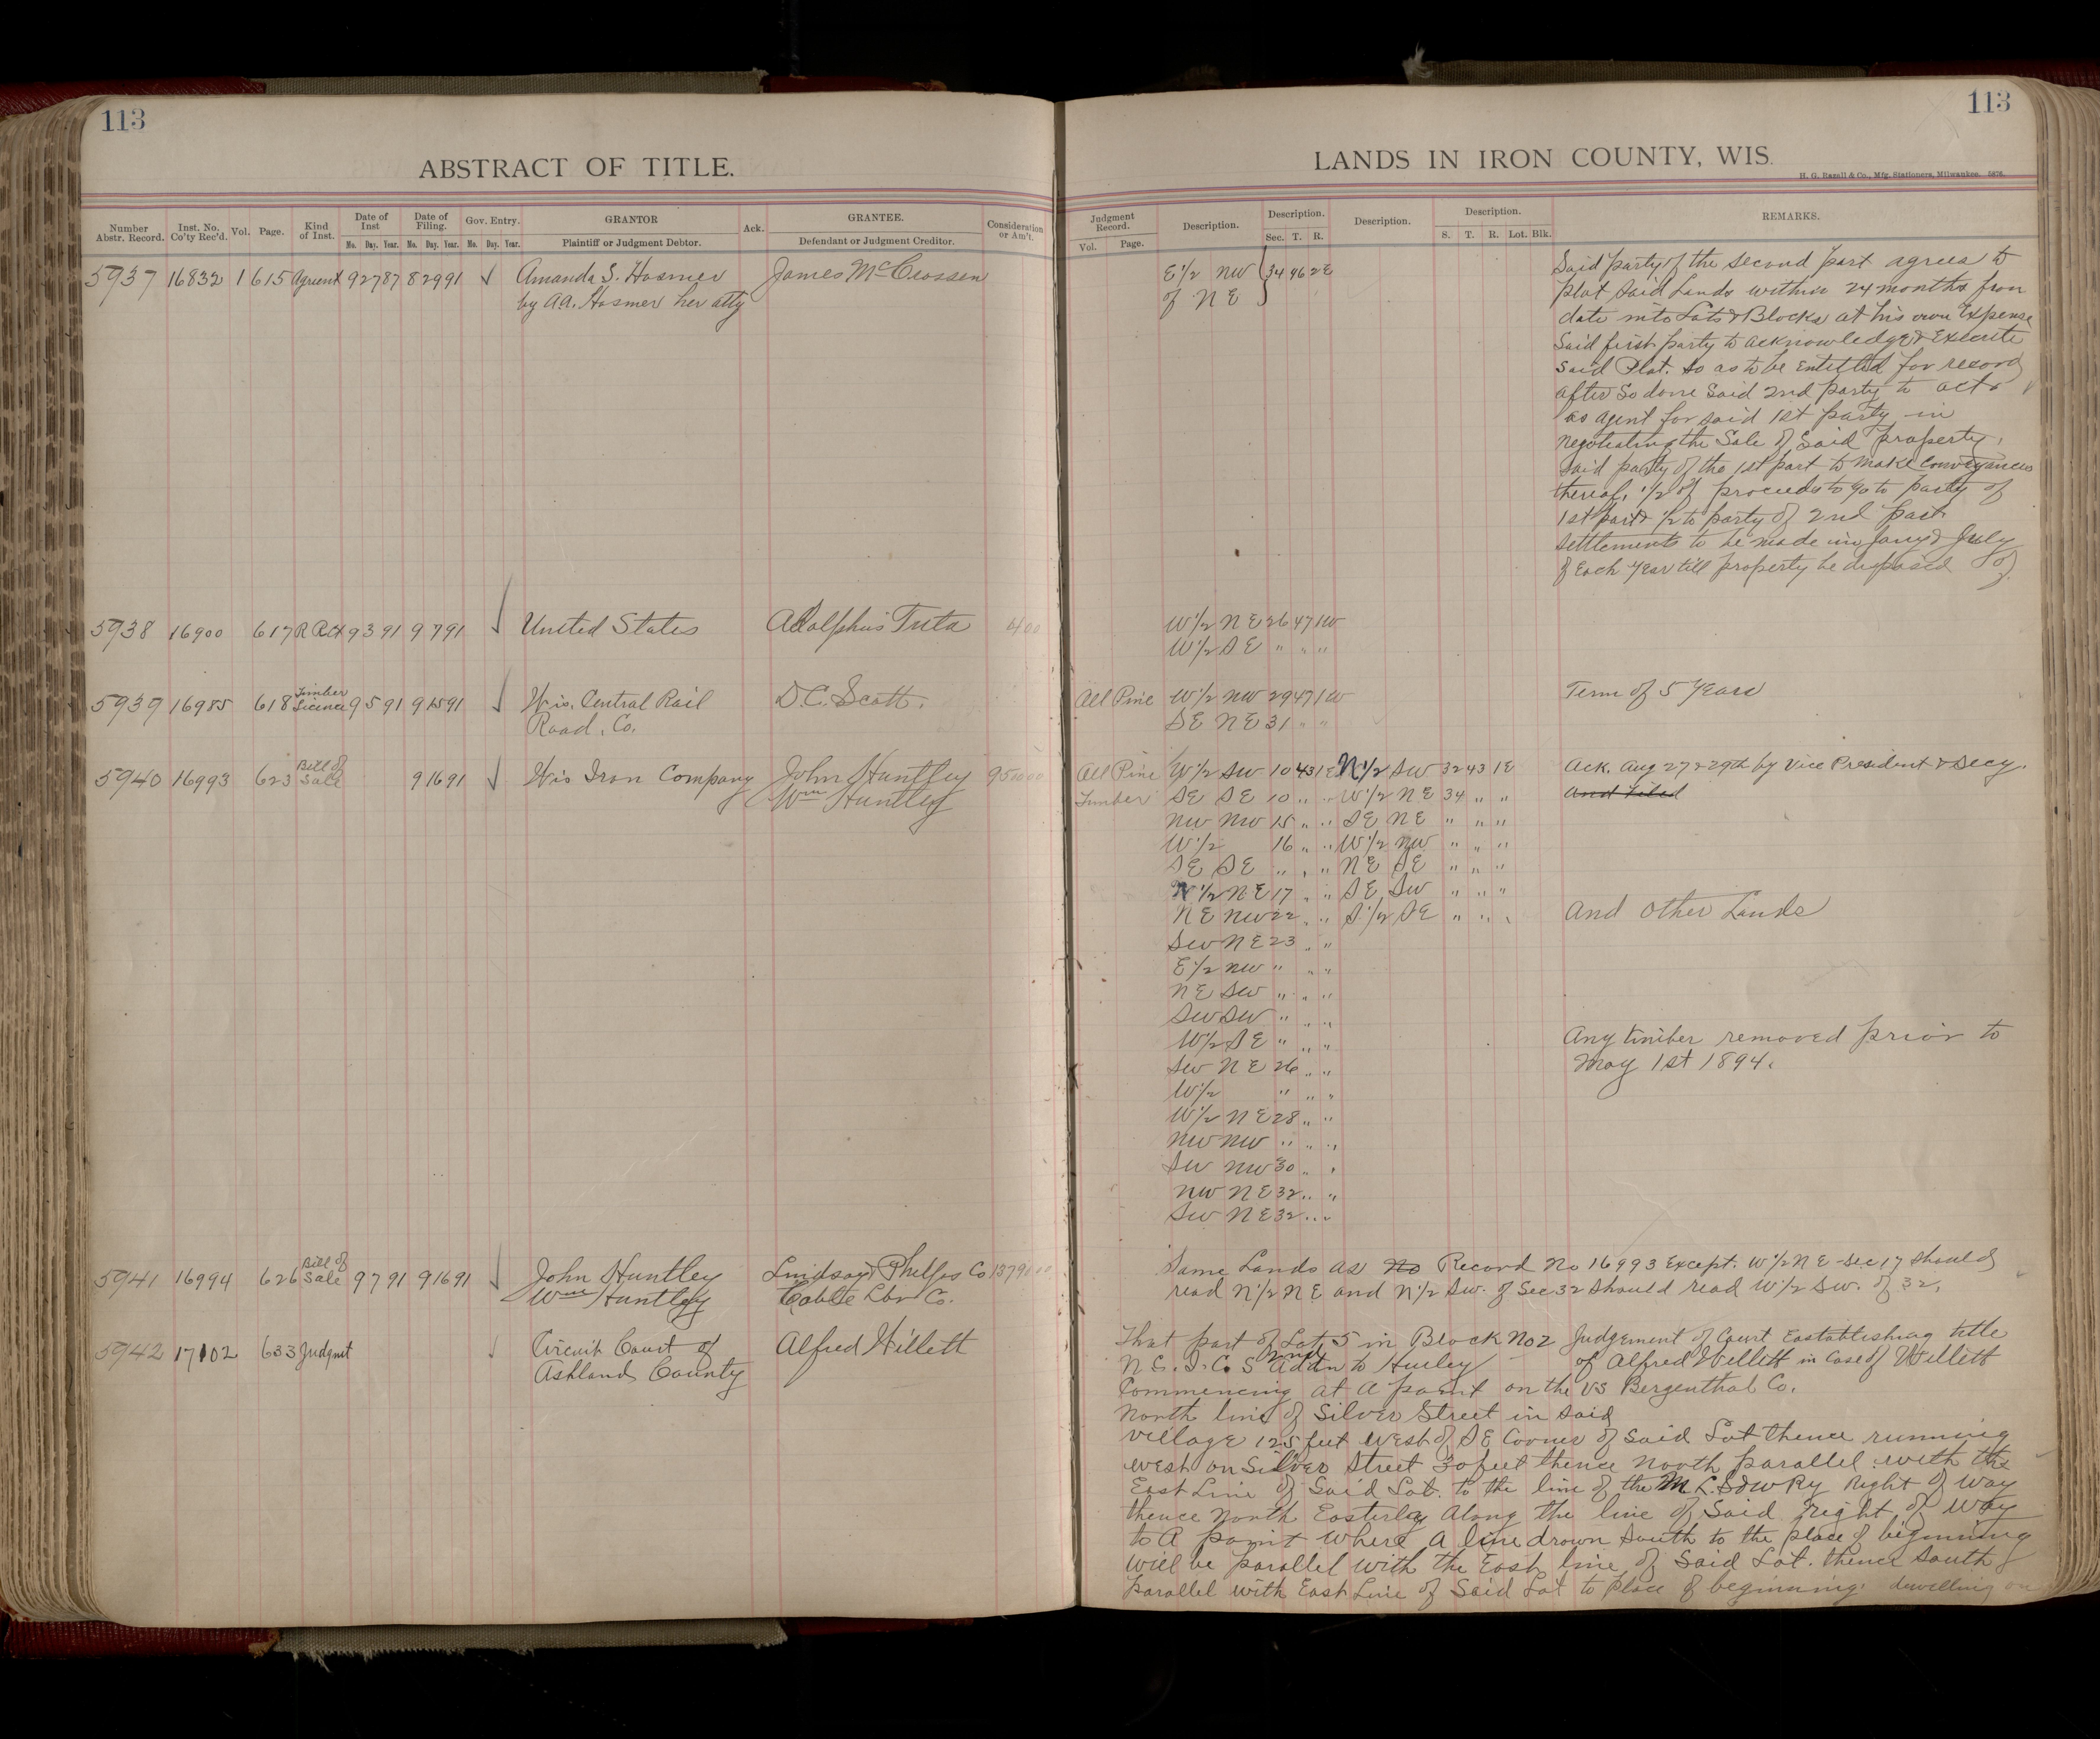 113
ABSTRACT OF TITLE.
Number Abstr. Record. Inst. No. Co'ty Rec'd. Vol. Page. Kind of Inst. Date of Inst Mo. Day. Year. Date of Filing. Mo. Day. Year. Gov. Entry. Mo. Day. Year. GRANTOR Plaintiff or Judgment Debtor. Ack. GRANTEE. Defendant or Judgment Creditor. Consideration or Am't.
5937 16832 1 615 Agrment 9 27 87 8 29 91 Amanda S. Hosmer James McCrossen
by A.A. Hosmer her atty
5938 16900 617 R Rct 9 3 91 9 7 91 United States Adolphus Tuta 400
5939 16985 618 Timber Licence 9 5 91 9 15 91 Wis. Central Rail D.C. Scott.
Road. Co.
5940 16993 623 Bill of Sale 9 16 91 Wis Iron Company John Huntley 951000
Wm Huntley
5941 16994 626 Bill of Sale 9 7 91 9 16 91 John Huntley Lindsay & Phelps Co
Wm Huntley Cable Lbr Co.
5942 17102 633 Judgmt Circuit Court of Alfred Willett
Ashland County
113
LANDS IN IRON COUNTY, WIS.
H. G. Razall & Co., Mfg. Stationers, Milwaukee. 5876.
Judgment Record. Vol. Page. Description. Description. Sec. T. R. Description. Description. S. T. R. Lot. Blk. REMARKS.
E 1/2 NW 34 46 2E
of NE
Said party of the second part agrees to
plat said Lands within 24 months from
date into Lots & Blocks at his own Expense
Said first party to acknowledge & Execute
said Plat. so as to be Entitled for record
after so done said 2nd party to act
as agent for said 1st party in
negotiating the Sale of Said property,
said party of the 1st part to make conveyances
thereof, 1/2 of proceeds to go to party of
1st part & 1/2 to party of 2nd part
settlements to be made in Jany & July
of Each Year till property be disposed of
W 1/2 NE 26 47 1W
W 1/2 SE " " "
All Pine W 1/2 NW 29 47 1W Term of 5 Years
SE NE 31 " "
All Pine W 1/2 SW 10 43 1E N 1/2 SW 32 43 1E Ack. Aug 27 & 29th by Vice President & Secy.
Timber SE SE 10 " " W 1/2 NE 34 " " And filed
NW NW 15 " " SE NE " " "
W 1/2 16 " " W 1/2 NW " " "
SE SE " " " NE SE " " "
N 1/2 NE 17 " " SE SW " " "
NE NW 22 " " S 1/2 SE " " " And other Lands
SW NE 23 " "
E 1/2 NW " " "
NE SW " " "
SW SW " " "
W 1/2 SE " " " Any timber removed prior to
SW NE 26 " " May 1st 1894.
W 1/2 " " "
W 1/2 NE 28 " "
NW NW " " "
SW NW 30 " "
NW NE 32 " "
SW NE 32 " "
Same Lands as No Record No 16993 Except. W 1/2 NE Sec 17 should
read N 1/2 NE and N 1/2 SW. of Sec 32 should read W 1/2 SW. of 32.
That part of Lot 5 in Block No 2 Judgement of Court Eastablishing title
N.C.I.Co S 2nd Addn to Hurley of Alfred Willett in Case of Willett
Commencing at a point on the VS Bergenthal Co.
North line of Silver Street in said
village 125 feet West of SE Corner of said Lot thence running
west on Silver Street 30 feet thence North parallel with the
East Line of Said Lot. to the line of the M L.S & W Ry Right of Way
thence North Easterly along the line of said right of Way
to a point where a line drown South to the place of biginning
will be parallel with the East line of Said Lot. thence South
parallel with East Line of Said Lot to place of beginning. dwelling on